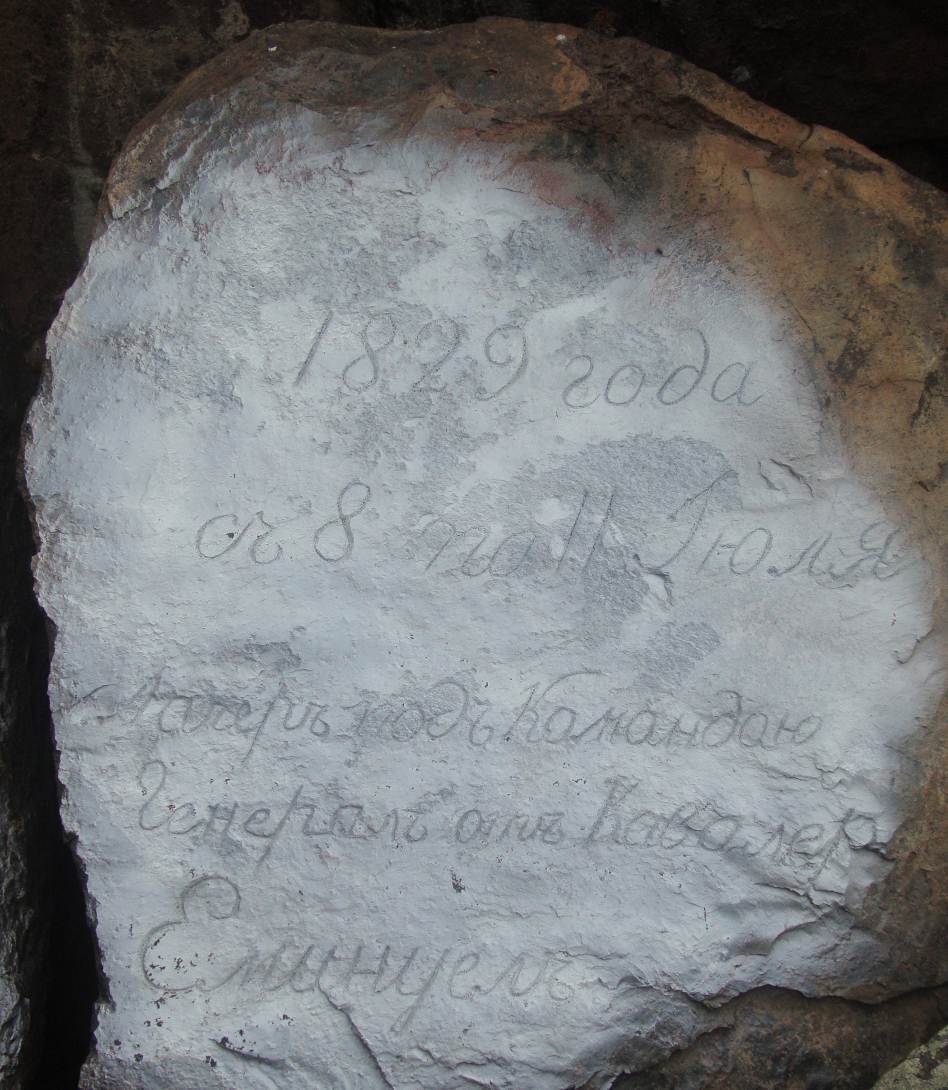 1829 года
съ 8 по 11 Іюля
Лагерь подъ Командаю
Генералъ отъ Кавалер
Емануелъ